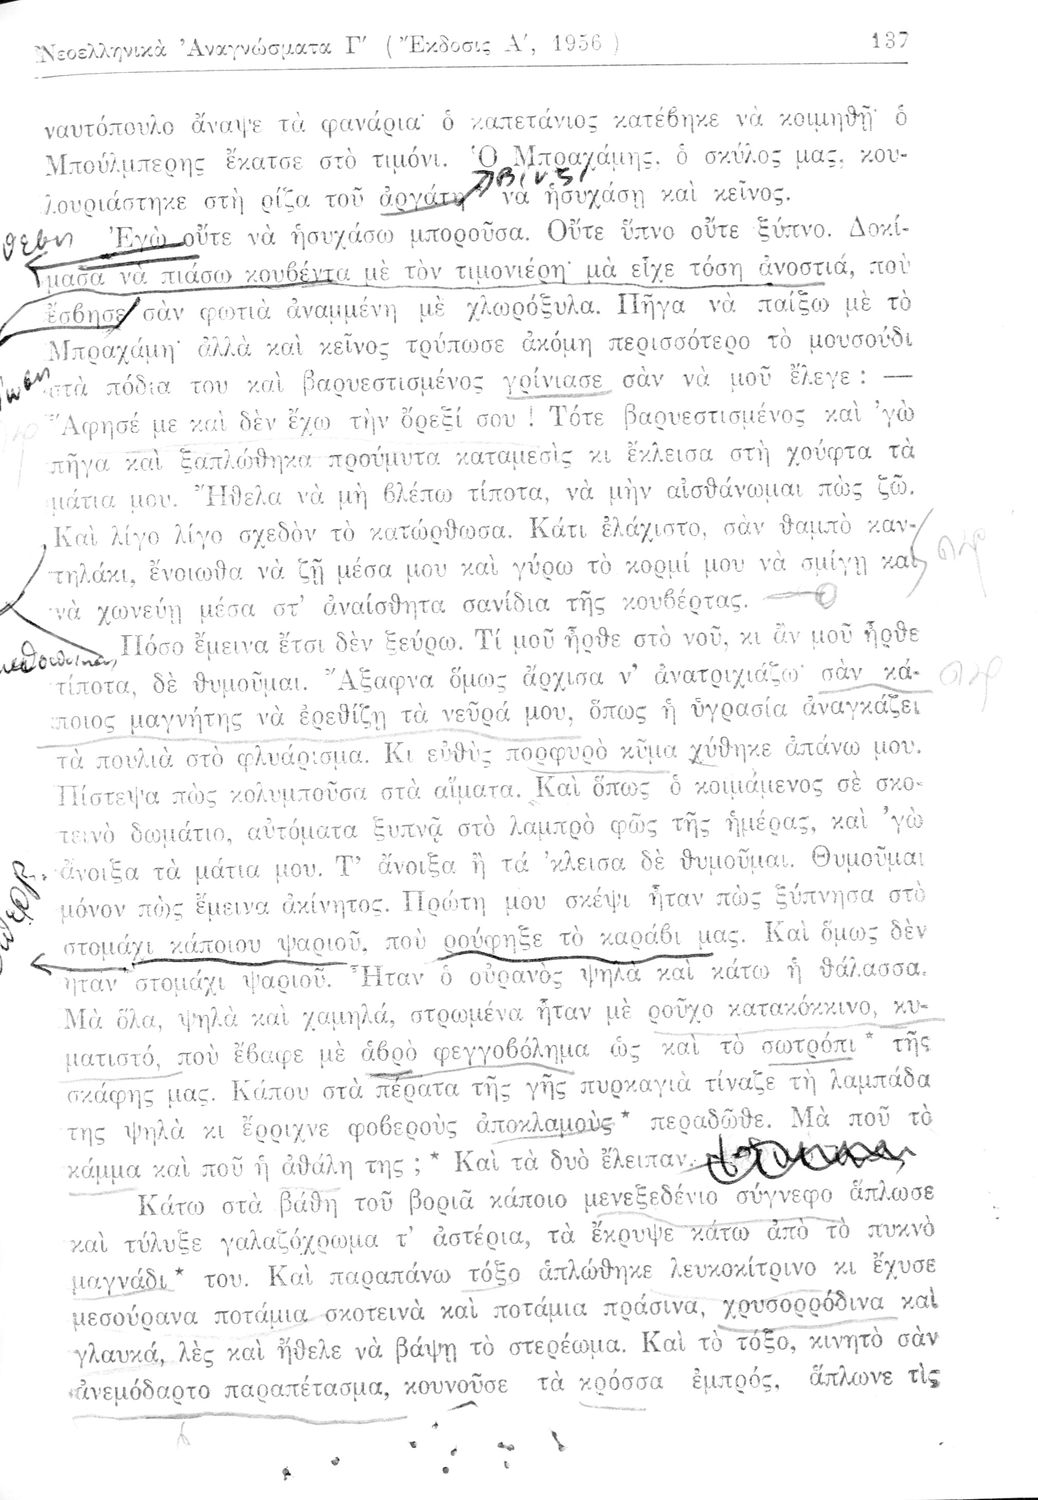 Νεοελληνικὰ Ἀναγνώσματα Γ′ (Ἔκδοσις Α′, 1956) 137
ναυτόπουλο ἄναψε τὰ φανάρια· ὁ καπετάνιος κατέβηκε νὰ κοιμηθῇ· ὁ
Μπούλμπερης ἔκατσε στὸ τιμόνι. Ὁ Μπραχάμης, ὁ σκύλος μας, κου-
βίντζι
λουριάστηκε στὴ ρίζα τοῦ ἀργάτη νὰ ἡσυχάσῃ καὶ κεῖνος.
Ἐγὼ οὔτε νὰ ἡσυχάσω μποροῦσα. Οὔτε ὕπνο οὔτε ξύπνο. Δοκί-
μασα νὰ πιάσω κουβέντα μὲ τὸν τιμονιέρη· μὰ εἶχε τόση ἀνοστιά, ποὺ
ἔσβησε σὰν φωτιὰ ἀναμμένη μὲ χλωρόξυλα. Πῆγα νὰ παίξω μὲ τὸ
Μπραχάμη· ἀλλὰ καὶ κεῖνος τρύπωσε ἀκόμη περισσότερο τὸ μουσούδι
στὰ πόδια του καὶ βαρυεστισμένος γρίνιασε σὰν νὰ μοῦ ἔλεγε: —
Ἄφησέ με καὶ δὲν ἔχω τὴν ὄρεξί σου! Τότε βαρυεστισμένος καὶ ’γὼ
πῆγα καὶ ξαπλώθηκα προύμυτα καταμεσὶς κι ἔκλεισα στὴ χούφτα τὰ
μάτια μου. Ἤθελα νὰ μὴ βλέπω τίποτα, νὰ μὴν αἰσθάνωμαι πὼς ζῶ.
Καὶ λίγο λίγο σχεδὸν τὸ κατώρθωσα. Κάτι ἐλάχιστο, σὰν θαμπὸ καν-
τηλάκι, ἔνοιωθα νὰ ζῇ μέσα μου καὶ γύρω τὸ κορμί μου νὰ σμίγῃ καὶ
νὰ χωνεύῃ μέσα στ’ ἀναίσθητα σανίδια τῆς κουβέρτας.
Πόσο ἔμεινα ἔτσι δὲν ξεύρω. Τί μοῦ ἦρθε στὸ νοῦ, κι ἂν μοῦ ἦρθε
τίποτα, δὲ θυμοῦμαι. Ἄξαφνα ὅμως ἄρχισα ν’ ἀνατριχιάζω· σὰν κά-
ποιος μαγνήτης νὰ ἐρεθίζῃ τὰ νεῦρά μου, ὅπως ἡ ὑγρασία ἀναγκάζει
τὰ πουλιὰ στὸ φλυάρισμα. Κι εὐθὺς πορφυρὸ κῦμα χύθηκε ἀπάνω μου.
Πίστεψα πὼς κολυμποῦσα στὰ αἵματα. Καὶ ὅπως ὁ κοιμάμενος σὲ σκο-
τεινὸ δωμάτιο, αὐτόματα ξυπνᾷ στὸ λαμπρὸ φῶς τῆς ἡμέρας, καὶ ’γὼ
ἄνοιξα τὰ μάτια μου. Τ’ ἄνοιξα ἢ τά ’κλεισα δὲ θυμοῦμαι. Θυμοῦμαι
μόνον πὼς ἔμεινα ἀκίνητος. Πρώτη μου σκέψι ἦταν πὼς ξύπνησα στὸ
στομάχι κάποιου ψαριοῦ, ποὺ ρούφηξε τὸ καράβι μας. Καὶ ὅμως δὲν
ἦταν στομάχι ψαριοῦ. Ἦταν ὁ οὐρανὸς ψηλὰ καὶ κάτω ἡ θάλασσα.
Μὰ ὅλα, ψηλὰ καὶ χαμηλά, στρωμένα ἦταν μὲ ροῦχο κατακόκκινο, κυ-
ματιστό, ποὺ ἔβαφε μὲ ἁβρὸ φεγγοβόλημα ὡς καὶ τὸ σωτρόπι* τῆς
σκάφης μας. Κάπου στὰ πέρατα τῆς γῆς πυρκαγιὰ τίναζε τὴ λαμπάδα
της ψηλὰ κι ἔρριχνε φοβεροὺς ἀποκλαμοὺς* περαδῶθε. Μὰ ποῦ τὸ
κάμμα καὶ ποῦ ἡ ἀθάλη της;* Καὶ τὰ δυὸ ἔλειπαν.
Κάτω στὰ βάθη τοῦ βοριᾶ κάποιο μενεξεδένιο σύγνεφο ἅπλωσε
καὶ τύλυξε γαλαζόχρωμα τ’ ἀστέρια, τὰ ἔκρυψε κάτω ἀπὸ τὸ πυκνὸ
μαγνάδι* του. Καὶ παραπάνω τόξο ἁπλώθηκε λευκοκίτρινο κι ἔχυσε
μεσούρανα ποτάμια σκοτεινὰ καὶ ποτάμια πράσινα, χρυσορρόδινα καὶ
γλαυκά, λὲς καὶ ἤθελε νὰ βάψῃ τὸ στερέωμα. Καὶ τὸ τόξο, κινητὸ σὰν
ἀνεμόδαρτο παραπέτασμα, κουνοῦσε τὰ κρόσσα ἐμπρός, ἅπλωνε τὶς